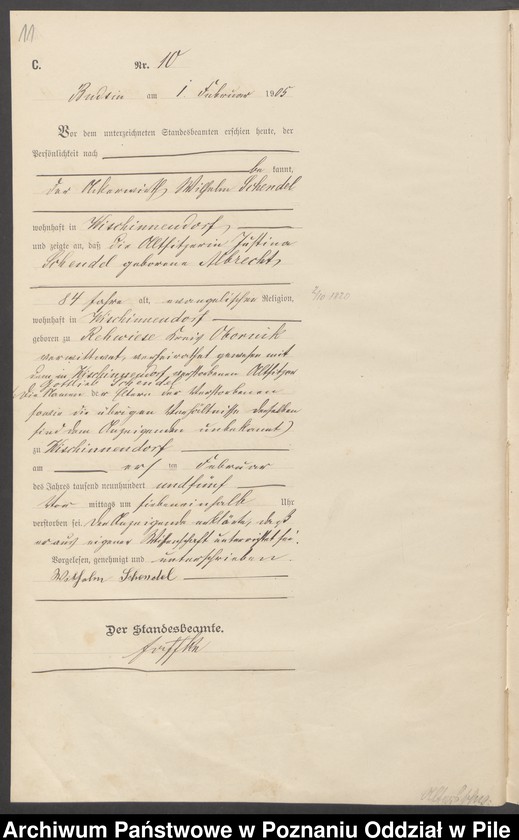 11
C.
Nr. 10
Budsin am 1. Februar 1905
Vor dem unterzeichneten Standesbeamten erschien heute, der
Persönlichkeit nach
be kannt,
der Ackerwirth, Wilhelm Schendel
wohnhaft in Wischinnendorf,
und zeigte an, daß die Altsitzerin Justina
Schendel geborene Albrecht,
84 Jahre alt, evangelischer Religion,
wohnhaft in Wischinnendorf
geboren zu Rehwiese Kreis Obornik
verwittwet, verheirathet gewesen mit
dem in Wischinnendorf verstorbenen Altsitzer
Gottlieb Schendel
die Namen der Eltern der Verstorbenen
sowie die übrigen Verhältnisse derselben
sind dem Anzeigenden unbekannt)
zu Wischinnendorf
am ersten Februar
des Jahres tausend neunhundert undfünf
Vor mittags um siebeneinhalb Uhr
verstorben sei. Der Anzeigende erklärte, daß
er aus eigener Wissenschaft unterrichtet sei.
Vorgelesen, genehmigt und unterschrieben
Wilhelm Schendel
Der Standesbeamte.
Archiwum Państwowe w Poznaniu Oddział w Pile